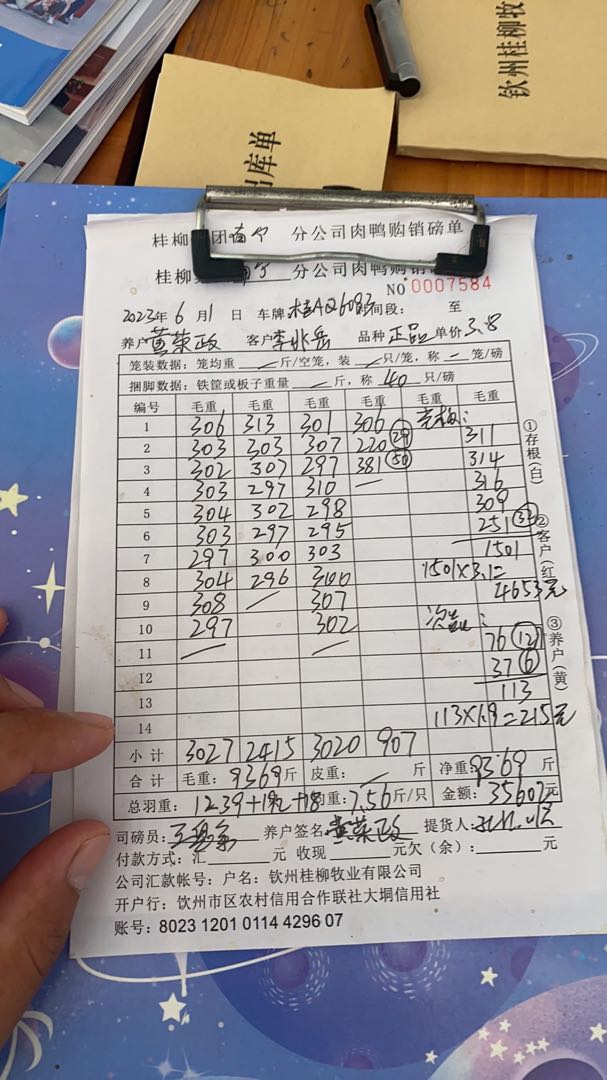 钦州桂柳牧
出库单
桂柳 团 分公司肉鸭购销磅单
桂柳 分公司肉鸭购销
NO 0007584
2023年6月1日 车牌 桂AQ6093 时间段： 至
养户 黄荣政 客户 李兆岳 品种 正品 单价 3.8
笼装数据：笼均重 — 斤/空笼，装 — 只/笼，称 — 笼/磅
捆脚数据：铁筐或板子重量 — 斤，称 40 只/磅
编号 毛重 毛重 毛重 毛重 毛重 毛重
1 306 313 301 306
2 303 303 307 220 29 311
3 302 307 297 381 50 314
4 303 297 310 — 316
5 304 302 298 309
6 303 297 295 251
7 297 300 303 1501
8 304 296 300 1501×3.1=
4653元
9 308 — 307
10 297 302 次品：
76 12
11 — — 37 6
12 113
13
14 113×1.9=215元
小计 3027 2415 3020 907
合计 毛重：9369斤 皮重： — 斤 净重：9369 斤
总羽重：1239+192+18 均重：7.56斤/只 金额：35607元
司磅员： 养户签名：黄荣政 提货人：
付款方式：汇 元 收现 元欠（余）： 元
公司汇款帐号：户名：钦州桂柳牧业有限公司
开户行：钦州市区农村信用合作联社大垌信用社
账号：8023 1201 0114 4296 07
①存根（白）
②客户（红
③养户（黄）